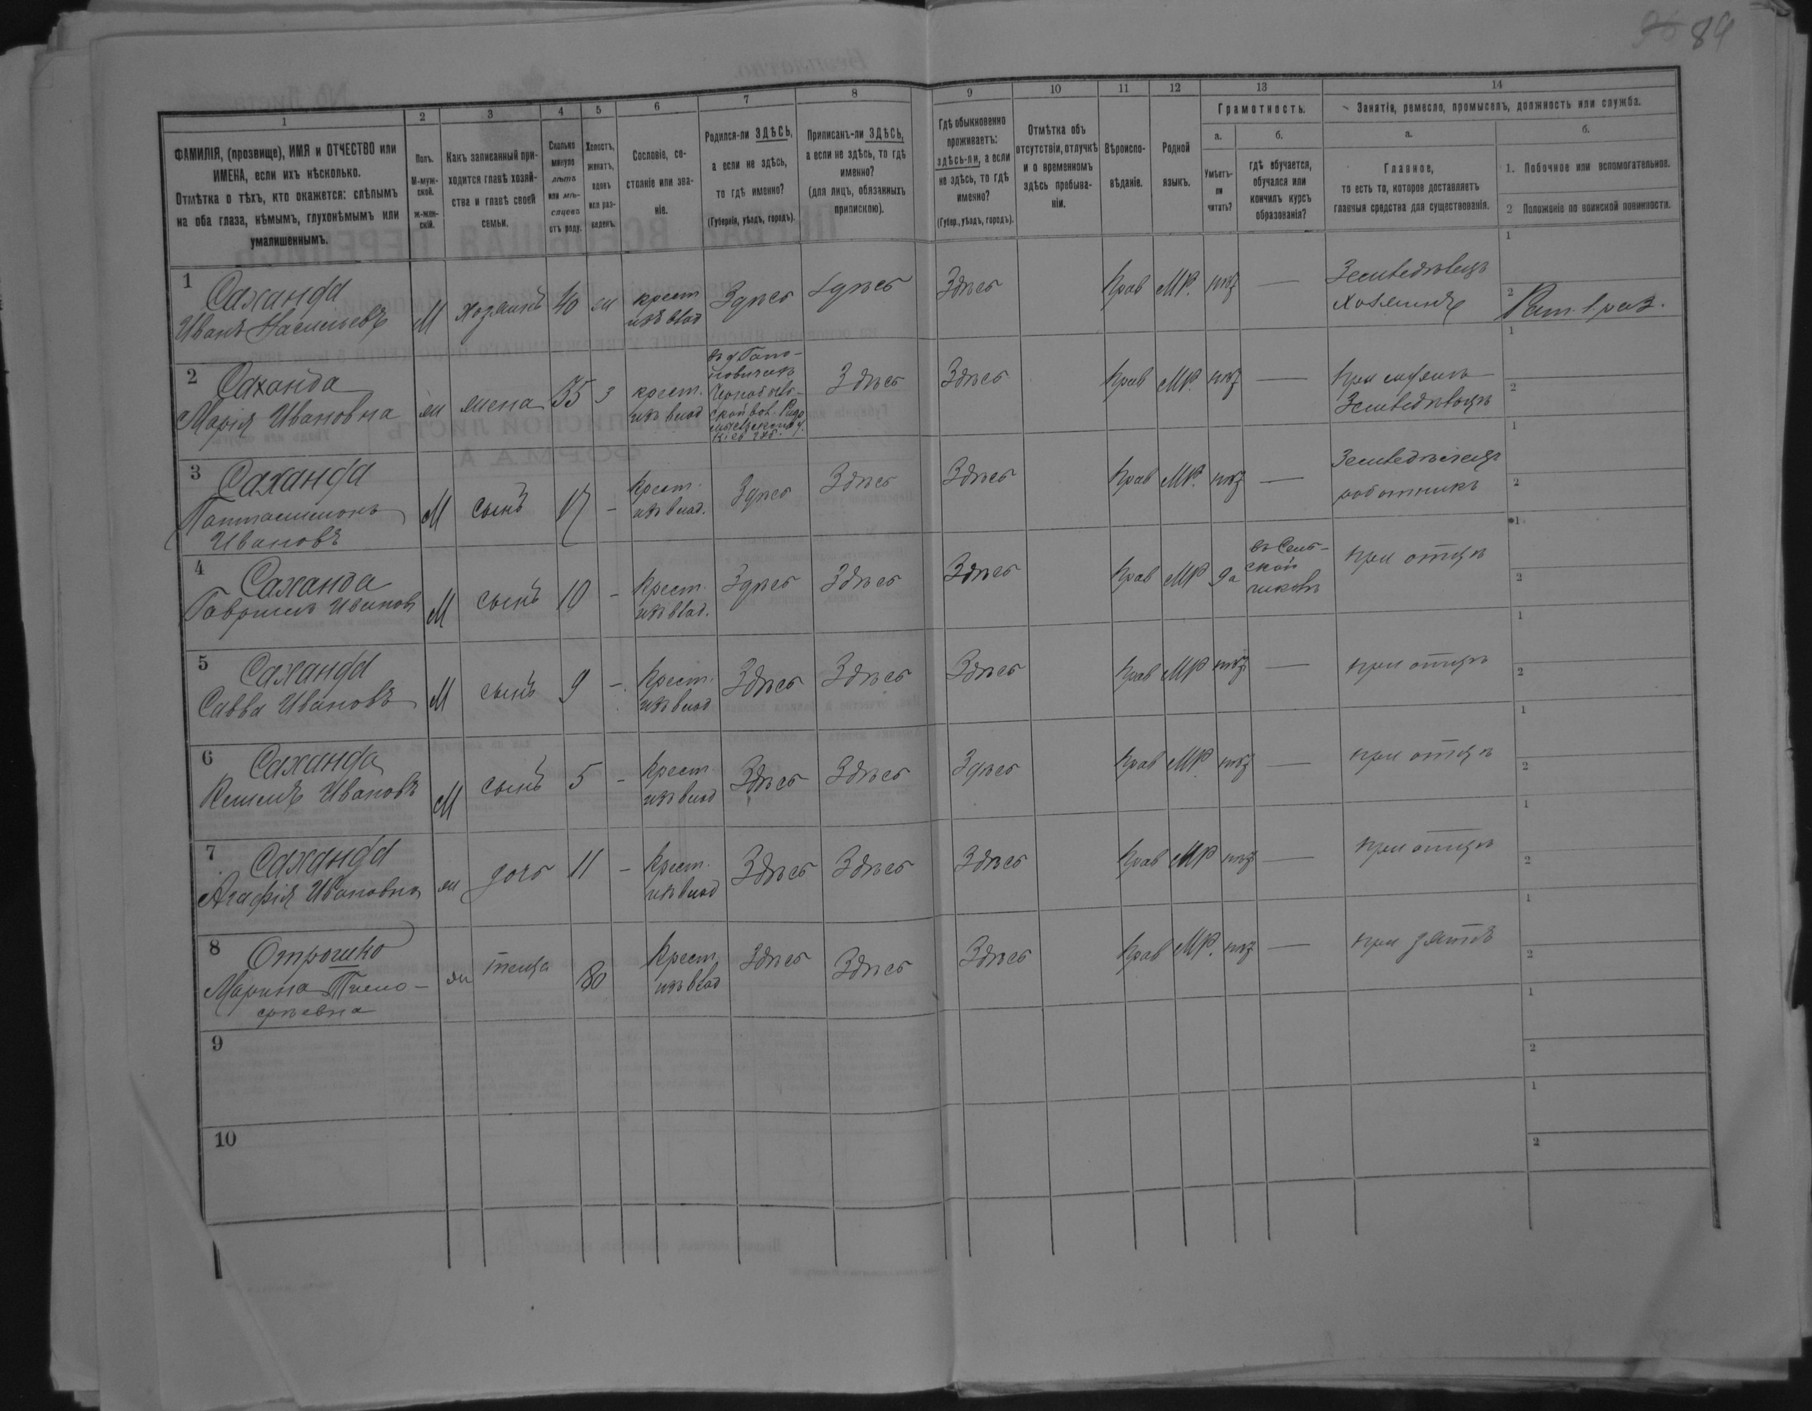 89
1 2 3 4 5 6 7 8 9 10 11 12 13 14
ФАМИЛІЯ, (прозвище), ИМЯ и ОТЧЕСТВО или
ИМЕНА, если ихъ нѣсколько.
Отмѣтка о тѣхъ, кто окажется: слѣпымъ
на оба глаза, нѣмымъ, глухонѣмымъ или
умалишеннымъ.
Полъ.
М-муж-
ской.
Ж-жен-
скій.
Какъ записанный при-
ходится главѣ хозяй-
ства и главѣ своей
семьи.
Сколько
минуло
лѣтъ
или мѣ-
сяцевъ
отъ роду.
Холостъ,
женатъ,
вдовъ
или раз-
веденъ.
Сословіе, со-
стояніе или зва-
ніе.
Родился-ли ЗДѢСЬ,
а если не здѣсь,
то гдѣ именно?
(Губернія, уѣздъ, городъ).
Приписанъ-ли ЗДѢСЬ,
а если не здѣсь, то гдѣ
именно?
(для лицъ, обязанныхъ
припискою).
Гдѣ обыкновенно
проживаетъ:
здѣсь-ли, а если
не здѣсь, то гдѣ
именно?
(Губер., уѣздъ, городъ).
Отмѣтка объ
отсутствіи, отлучкѣ
и о временномъ
здѣсь пребыва-
ніи.
Вѣроиспо-
вѣданіе.
Родной
языкъ.
Грамотность.
а.
Умѣетъ-
ли
читать?
б.
гдѣ обучается,
обучался или
кончилъ курсъ
образованія?
Занятія, ремесло, промыселъ, должность или служба.
а.
Главное,
то есть то, которое доставляетъ
главныя средства для существованія.
б.
1. Побочное или вспомогательное.
2 Положеніе по воинской повинности.
1 Саханда
Иванъ Васильевъ М хозяинъ 40 ж крест. изъ влад Здѣсь Здѣсь Здѣсь Прав МР. нѣт — Земледѣлецъ хозяинъ
1
2 Рат. 1 раз.
2 Саханда
Марія Ивановна ж жена 35 з крест. изъ влад Здѣсь Здѣсь Прав МР нѣт — При мужѣ Земледѣлецъ
1
2
3 Саханда
Пантелимонъ
Ивановъ М сынъ 17 - Крест. изъ влад. Здѣсь Здѣсь Здѣсь Прав МР. нѣт — Земледѣлецъ работникъ
1
2
4 Саханда
Гавріилъ Ивановъ М сынъ 10 - Крест. изъ влад. Здѣсь Здѣсь Здѣсь Прав МР да въ Сель-
ской
школѣ при отцѣ
1
2
5 Саханда
Савва Ивановъ М сынъ 9 - Крест. изъ влад Здѣсь Здѣсь Здѣсь Прав МР нѣт — при отцѣ
1
2
6 Саханда
Ивановъ М сынъ 5 - Крест изъ влад Здѣсь Здѣсь Здѣсь Прав МР. нѣт — при отцѣ
1
2
7 Саханда
Агафія Ивановна ж дочь 11 - Крест. изъ влад Здѣсь Здѣсь Здѣсь Прав МР нѣт — при отцѣ
1
2
8
Марина Тимо-
фѣевна ж теща 80 Крест. изъ влад Здѣсь Здѣсь Здѣсь Прав МР. нѣт — при зятѣ
1
2
9
1
2
10
1
2